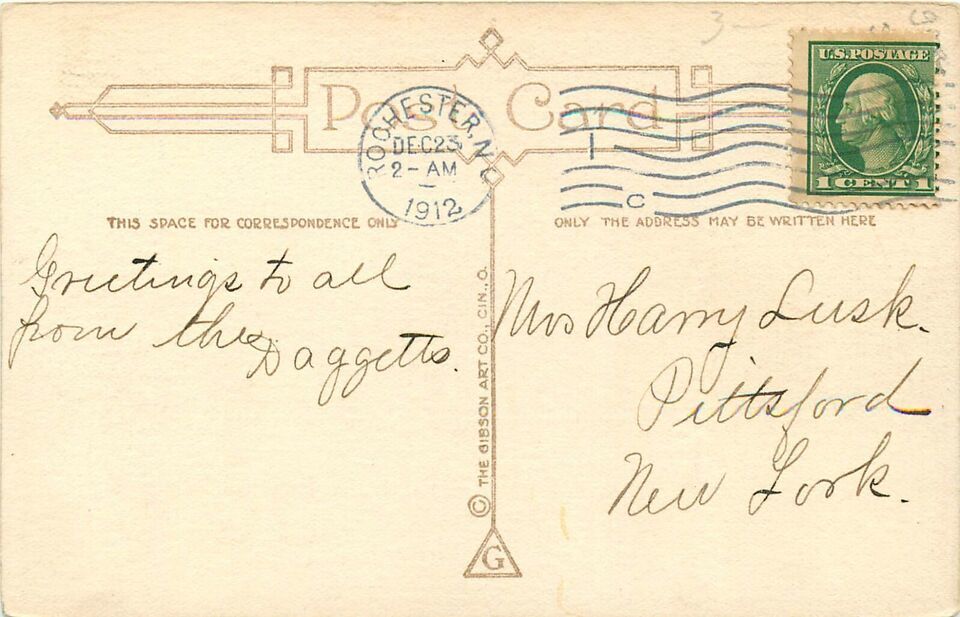 3
Post Card
U.S. POSTAGE
1 CENT 1
ROCHESTER, N.Y.
DEC 23
2 - AM
1912
1
C
THIS SPACE FOR CORRESPONDENCE ONLY
ONLY THE ADDRESS MAY BE WRITTEN HERE
Greetings to all
from the Daggetts.
© THE GIBSON ART CO., CIN., O.
G
Mrs Harry Lusk.
Pittsford
New York.